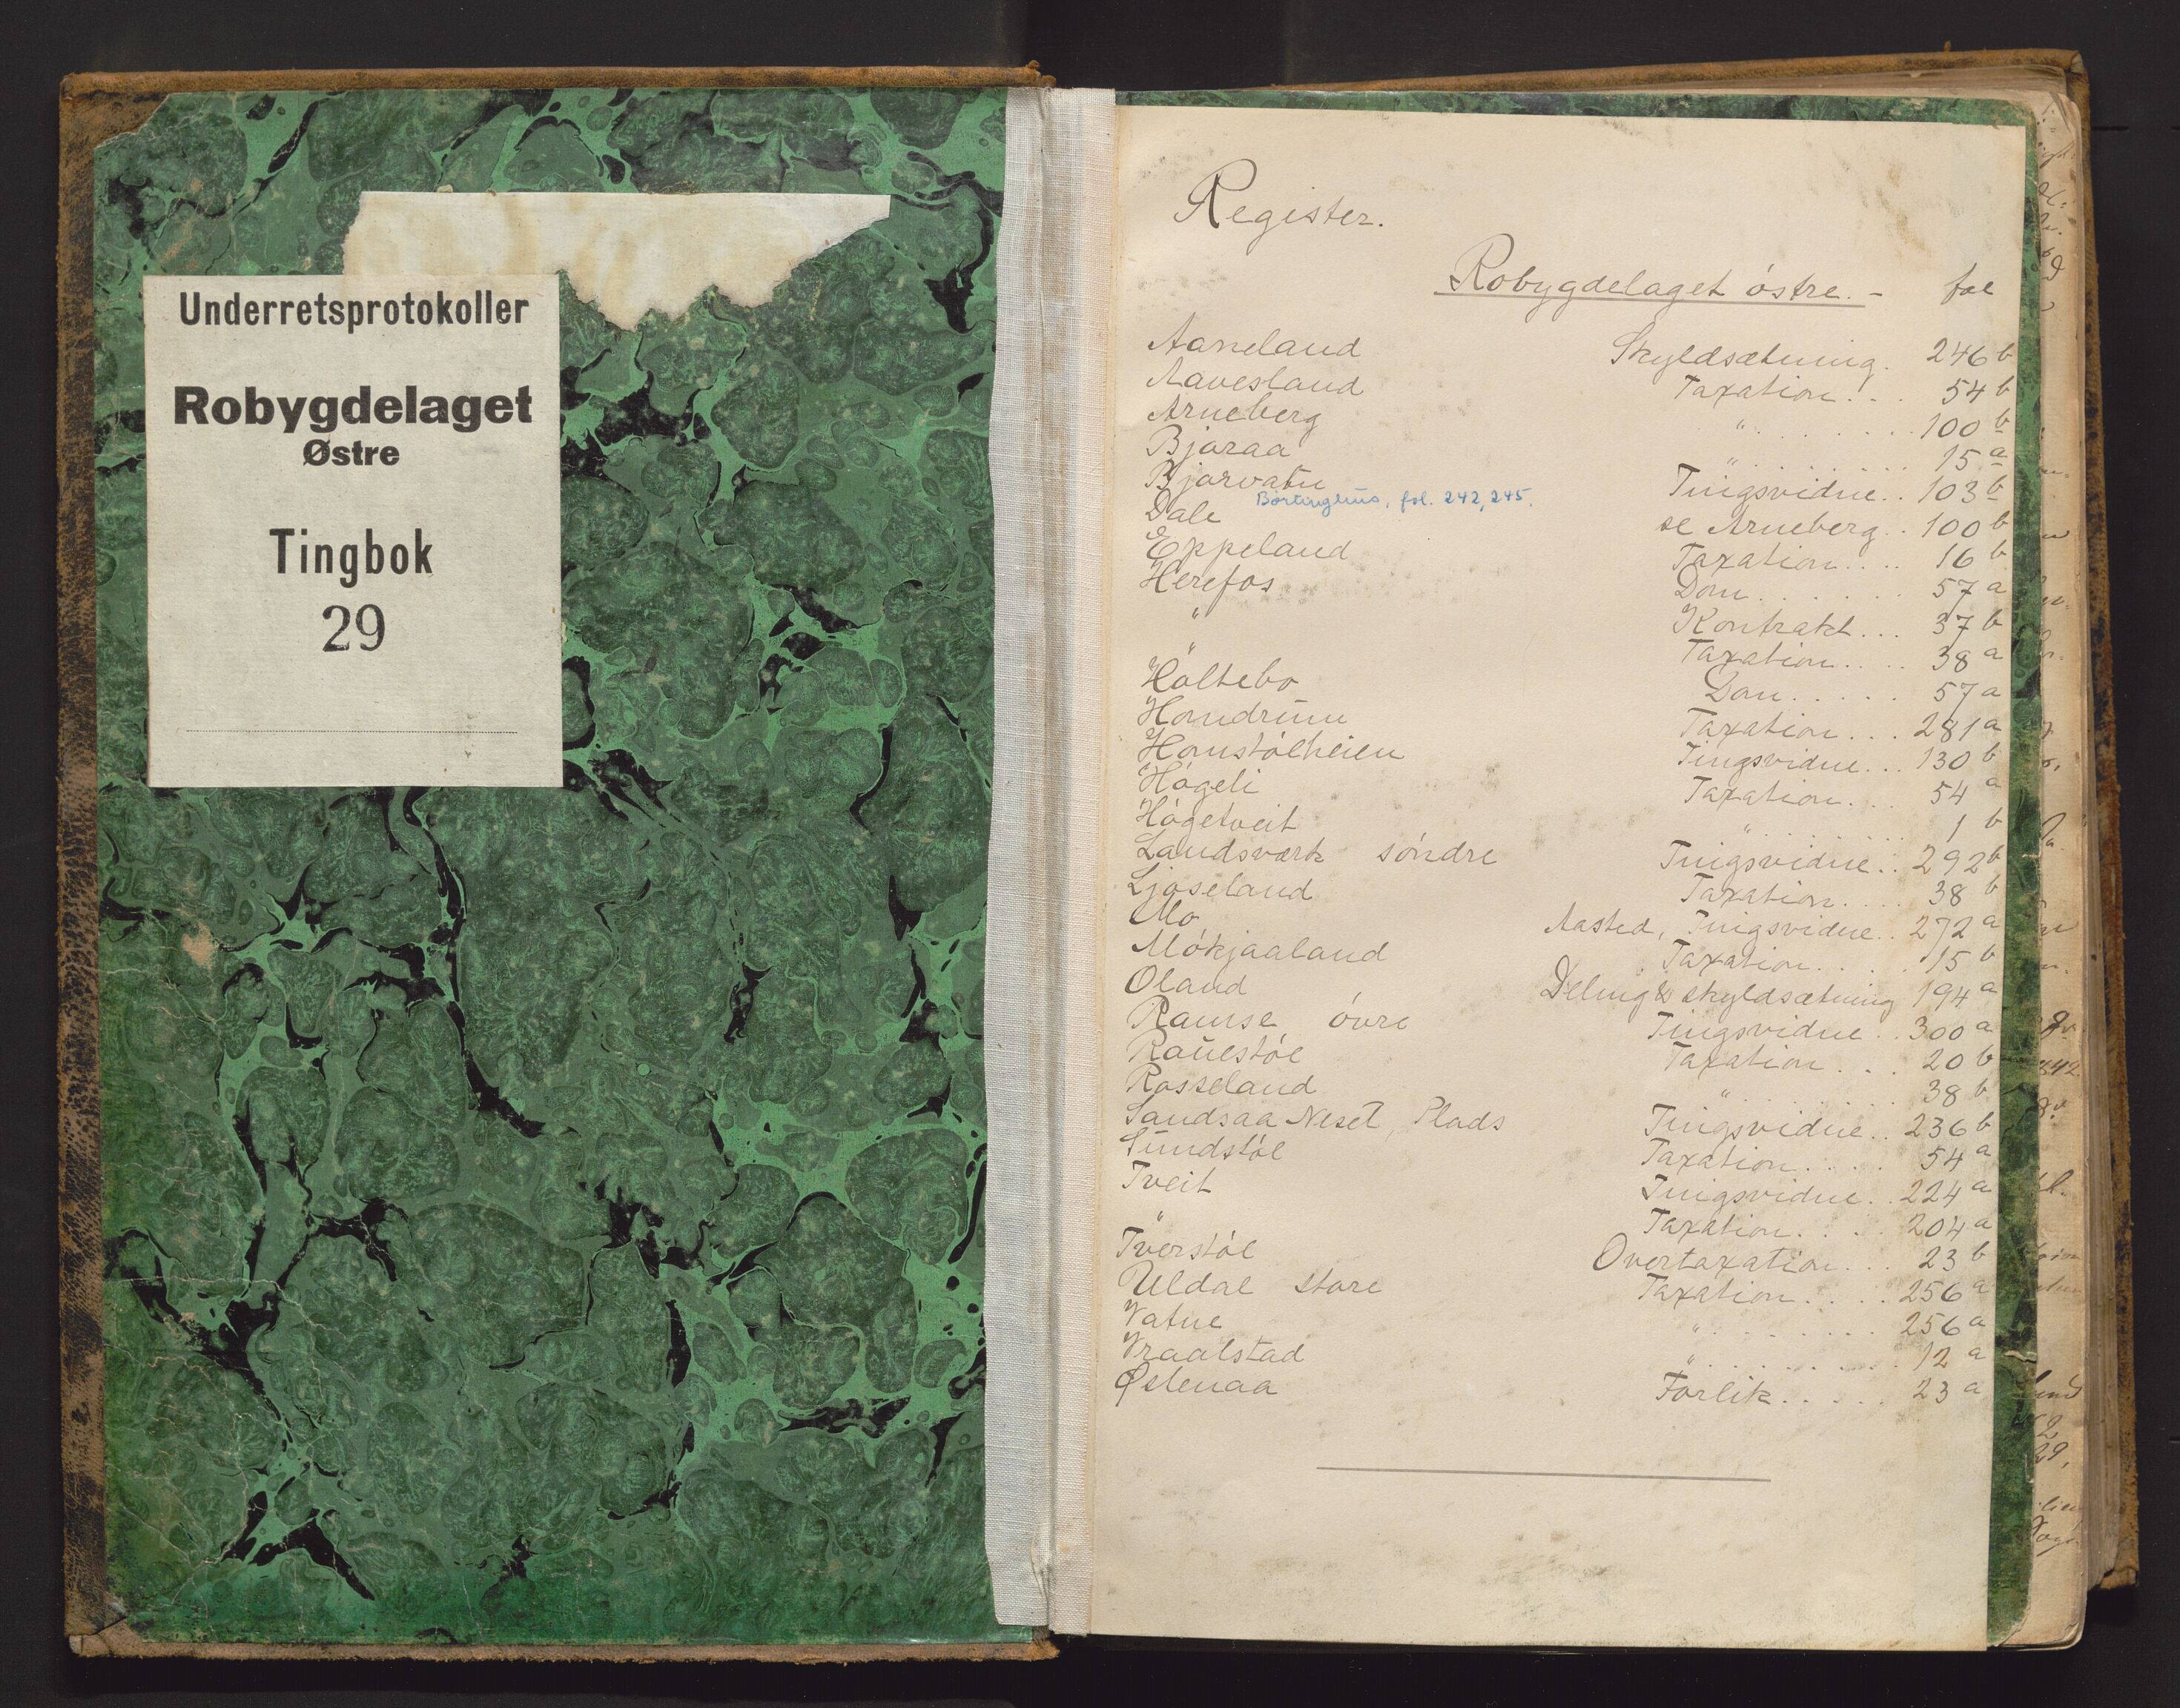 Underretsprotokoller
Robygdelaget
Østre
Tingbok
29
Register.
Robygdelaget östre. - fol
Aaneland Skyldsætning. 246 b
Aavesland Taxation... 54 b
Arneberg " ....... 100 b
Bjøraa " ....... 15 a
Bjorvatn Tingsvidne.. 103 b
Børtinghus, fol. 242, 245.
Dale se Arneberg.. 100 b
Eppeland Taxation.... 16 b
Herefos Dom....... 57 a
" Kontrakt... 37 b
" Taxation.... 38 a
Holtebo Dom..... 57 a
Homdrum Taxation... 281 a
Homstölheien Tingsvidne... 130 b
Högeli Taxation... 54 a
Högetveit " ........ 1 b
Landsværk söndre Tingsvidne.. 292 b
Ljoseland Taxation.... 38 b
Mo Aasted, Tingsvidne.. 272 a
Mökjaaland Taxation..... 15 b
Oland Deling & skyldsætning 194 a
Ramse övre Tingsvidne.. 300 a
Rauestöl Taxation... 20 b
Rosseland " ........ 38 b
Sandsaa Neset, Plads Tingsvidne.. 236 b
Sundstöl Taxation.... 54 a
Tveit Tingsvidne.. 224 a
" Taxation.... 204 a
Tverstöl Overtaxation... 23 b
Uldal store Taxation..... 256 a
Vatne " ........ 256 a
Vraalstad " ......... 12 a
Østenaa Forlik..... 23 a